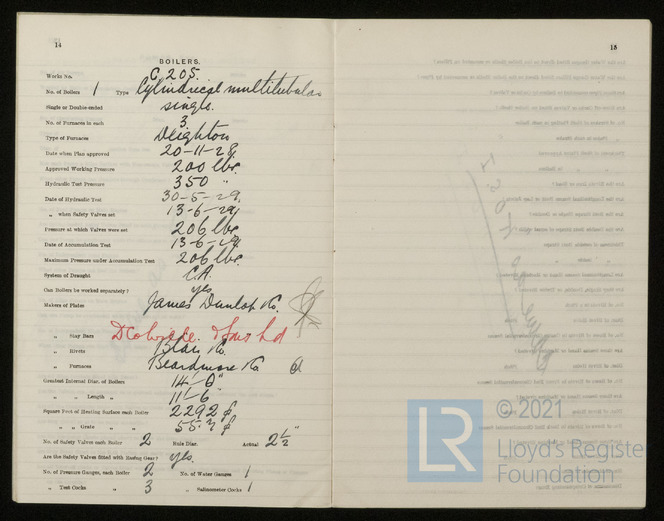 14
BOILERS.
Works No. C. 205.
No. of Boilers 1 Type Cylindrical multitubular
Single or Double-ended single.
No. of Furnaces in each 3.
Type of Furnaces Deighton
Date when Plan approved 20-11-28
Approved Working Pressure 200 lbs.
Hydraulic Test Pressure 350 "
Date of Hydraulic Test 30-5-29.
" when Safety Valves set 13-6-29
Pressure at which Valves were set 206 lbs.
Date of Accumulation Test 13-6-29
Maximum Pressure under Accumulation Test 206 lbs.
System of Draught C.A.
Can Boilers be worked separately? yes
Makers of Plates James Dunlop & Co.
" Stay Bars D Colville & Sons Ltd
" Rivets Blair & Co.
" Furnaces Beardmore & Co.
Greatest Internal Diam. of Boilers 14'-0"
" " Length " 11'-6"
Square Feet of Heating Surface each Boiler 2292
" " Grate " "
No. of Safety Valves each Boiler 2 Rule Diam. Actual 2½"
Are the Safety Valves fitted with Easing Gear? yes.
No. of Pressure Gauges, each Boiler 2 No. of Water Gauges 1
" Test Cocks " 3 " Salinometer Cocks 1
15
© 2021
LR
Lloyd's Register
Foundation